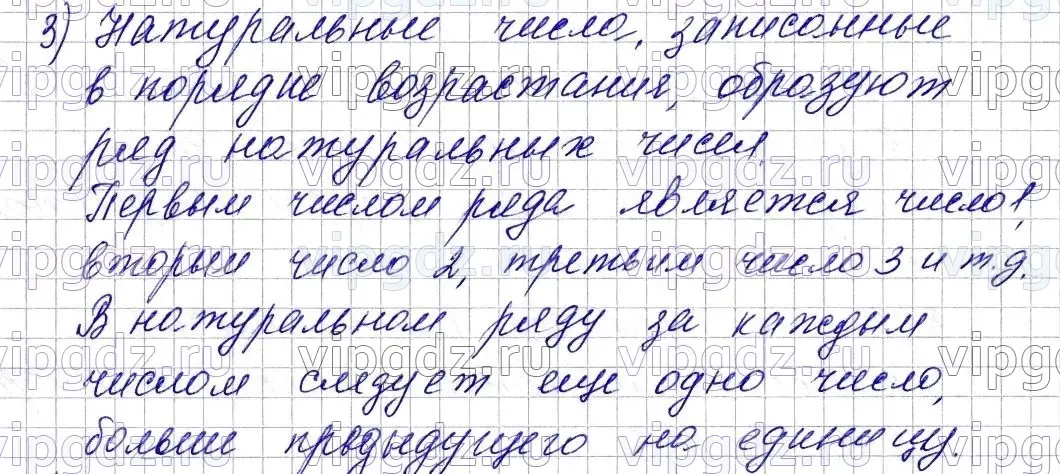 3) Натуральные числа, записанные
в порядке возрастания, образуют
ряд натуральных чисел.
Первым числом ряда является число 1,
вторым число 2, третьим число 3 и т.д.
В натуральном ряду за каждым
числом следует еще одно число,
больше предыдущего на единицу.
vipgdz.ru